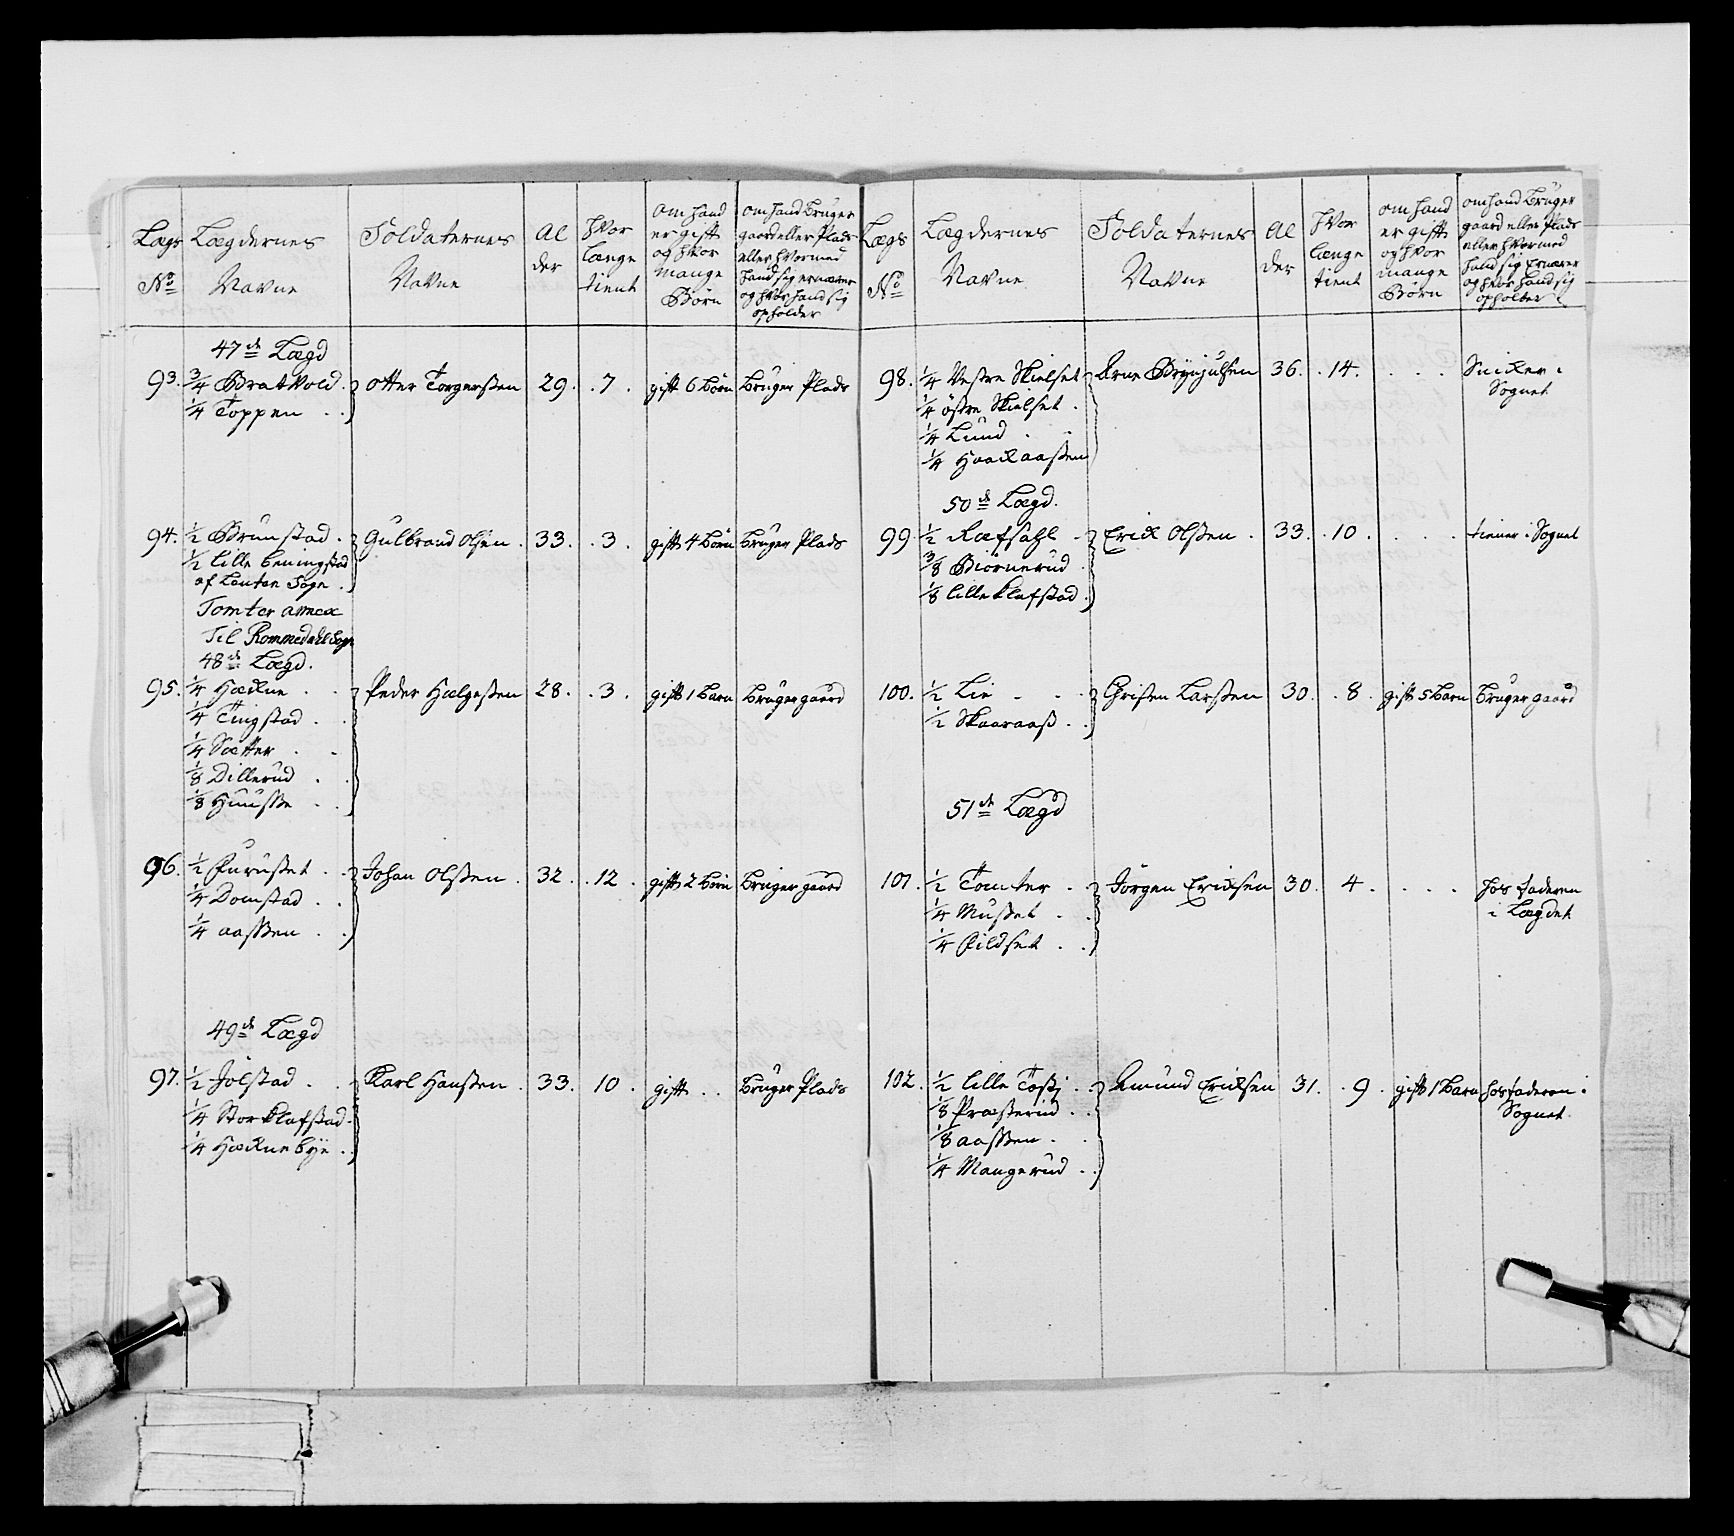 Lægs Lægdernes Soldaternes Al hvor om hand om hand bruger
No Navne Navne der længe er gift gaard eller Plads
tient og hvor eller hvormed
mange hand sig ernærer
Børn og hvor hand sig
opholder
47de Lægd
93. 3/4 Bratvold. Otter Torgersen 29. . 7. gift 6 børn bruger Plads
1/4 Toppen . .
94. 1/2 Brunstad. Gulbrand Olsen. 33. . 3. gift 4 børn bruger Plads
1/2 lille beningstad
af Leuten Sogn .
Tomter annex
Til Rommedahl Sogn
48de Lægd.
95. 1/4 Hækne . . Peder Hælgesen 28. . 3. gift 1 barn bruger gaard
1/4 Tingstad . .
1/4 Sætter . .
1/8 Dillerud . .
1/8 Huusse . .
96. 1/2 Furuset . . Johan Olssen . 32. . 12. gift 2 børn bruger gaard
1/4 Domstad . .
1/4 aassen . .
49de Lægd
97. 1/2 Jølstad . . Karl Hanssen . 33. 10. gift . . bruger Plads
1/4 Stor Klafstad.
1/4 Hækne bye . .
Lægs Lægdernes Soldaternes Al hvor om hand om hand bruger
No Navne Navne der længe er gift gaard eller Plads
tient og hvor eller hvormed
mange hand sig ernærer
Børn og hvor hand sig
opholder
98. 1/4 Vestre Skielset Arne Brynjulsen 36. . 14. . . . Snicker i
1/4 østre Skielset . Sognet
1/4 Lund . .
1/4 Haackaassen
50de Lægd.
99 1/2 Ræfsahl . Erick Olssen . 33. . 10. . . . tiener i Sognet
3/8 Biørnerud .
1/8 lille Klafstad .
100. 1/2 Lie . . . Christen Larssen 30. . 8. gift 5 barn bruger gaard
1/2 Skaaraas . .
51de Lægd
101. 1/2 Tomter . . Jörgen Ericksen 30. 4. . . . hos faderen
1/4 Musset . . i Lægdet
1/4 Kildset . .
102. 1/2 lille Tøsti . . Amund Ericksen 31. . 9. gift 1 barn hos faderen i
1/8 Præsterud . . Sognet.
1/8 aassen . .
1/4 Mangerud . .